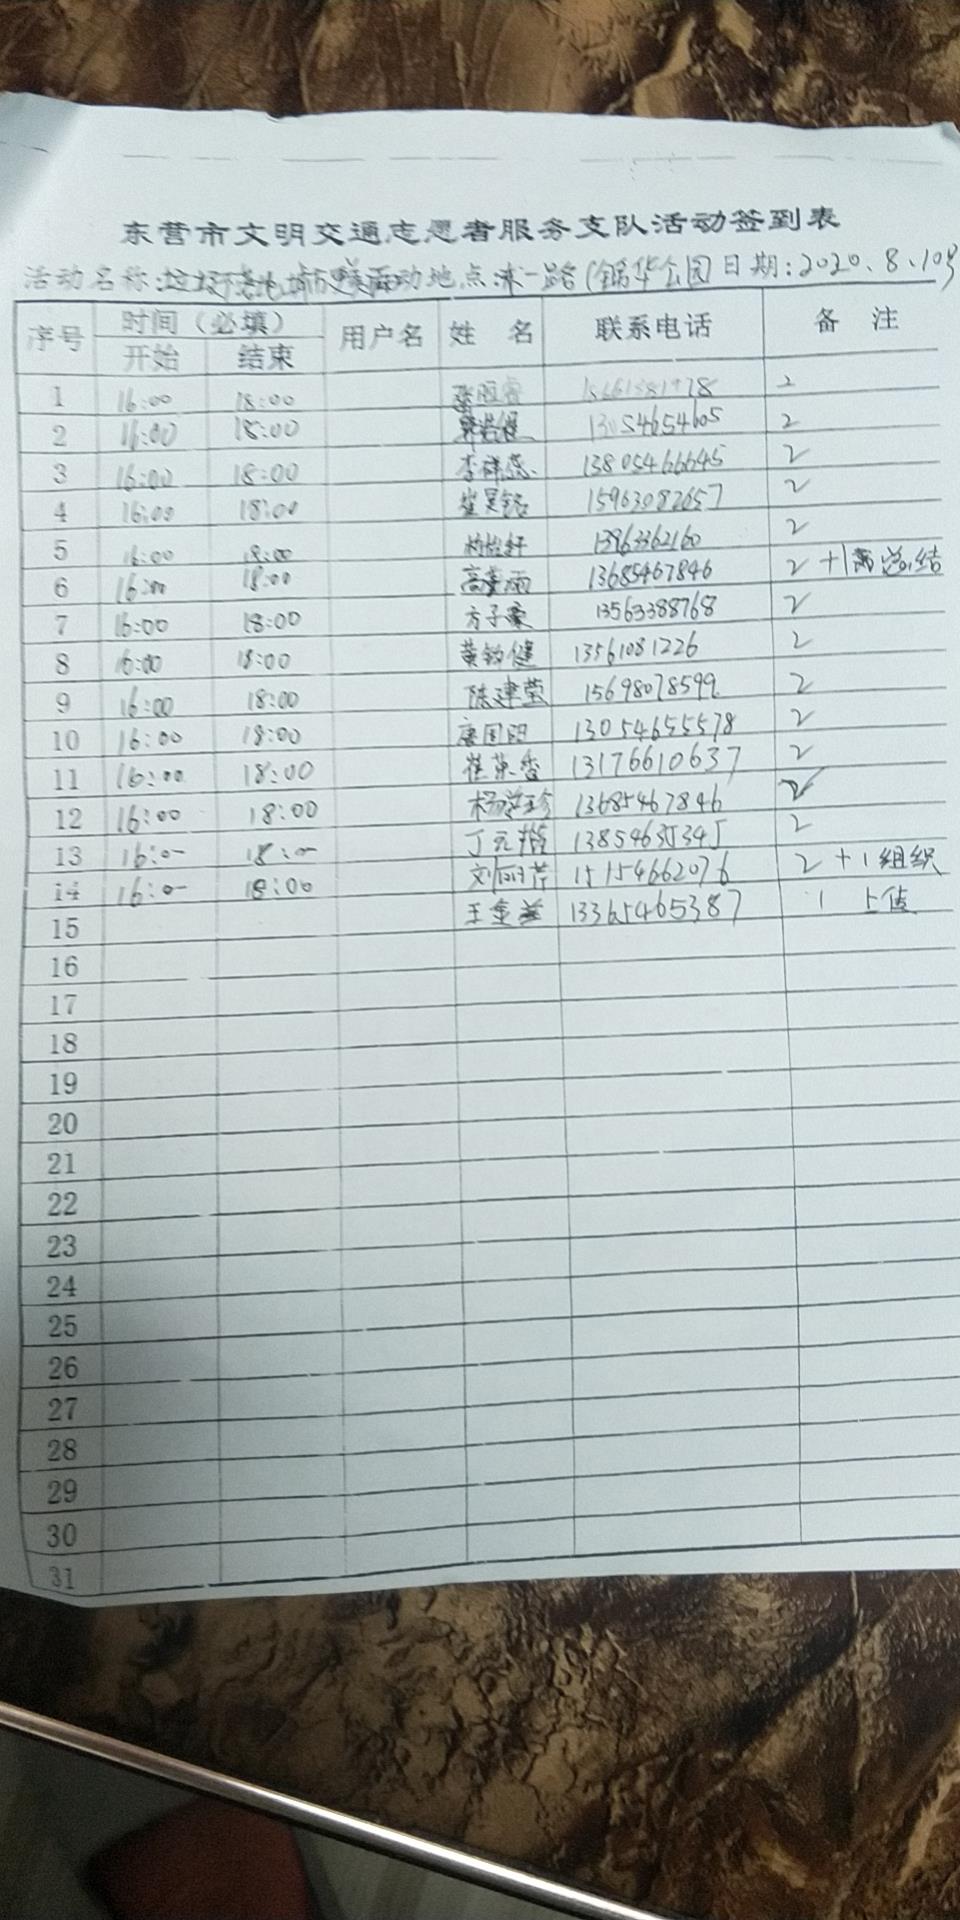 东营市文明交通志愿者服务支队活动签到表
活动名称:垃圾不落地 城市更美丽 活动地点:东一路(锦华公园 日期:2020.8.10号
序号 时间（必填） 用户名 姓 名 联系电话 备 注
开始 结束
1 16:00 18:00 2
2 16:00 18:00 13054654605 2
3 16:00 18:00 13805466645 2
4 16:00 18:00 15963082657 2
5 16:00 18:00 13963362160 2
6 16:00 18:00 13685467846 2 +1 总结
7 16:00 18:00 方子豪 13563388768 2
8 16:00 18:00 黄钧健 13561081226 2
9 16:00 18:00 陈建莹 15698078599 2
10 16:00 18:00 唐国阳 13054655578 2
11 16:00 18:00 崔英香 13176610637 2
12 16:00 18:00 13685467846 2
13 16:00 18:00 13854635345 2
14 16:00 18:00 15154662076 2 +1 组织
15 13365465387 1 上传
16
17
18
19
20
21
22
23
24
25
26
27
28
29
30
31